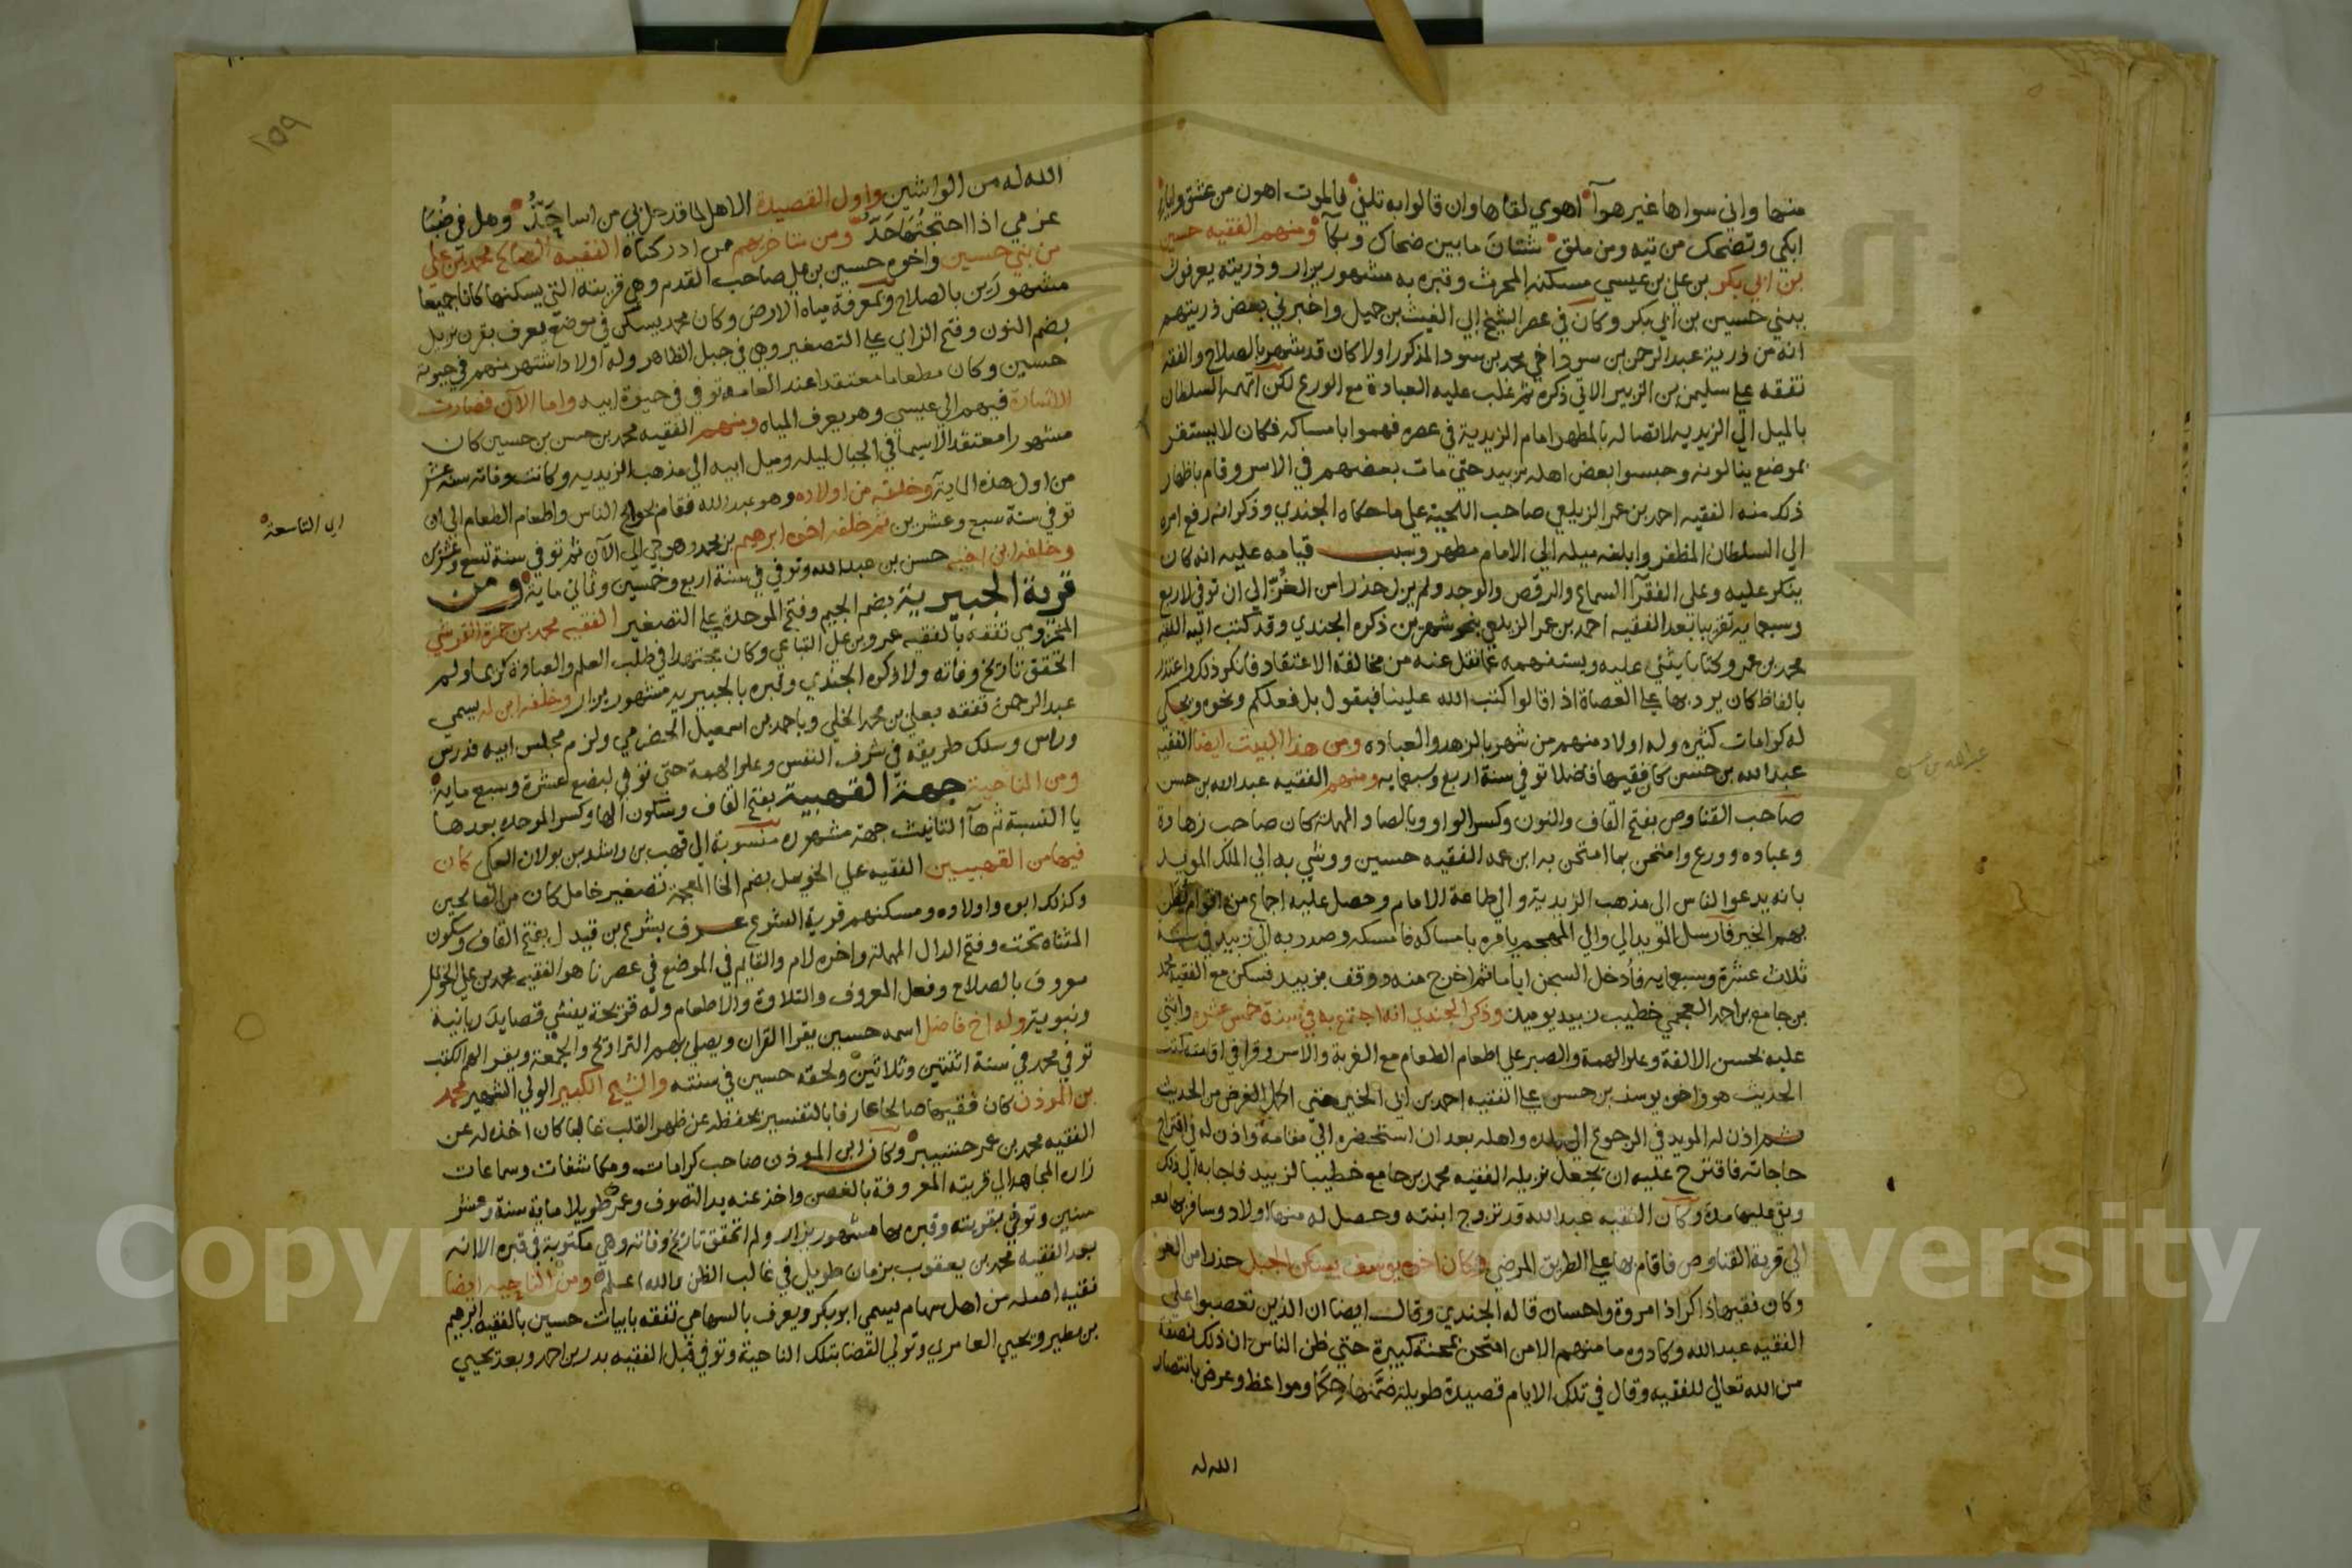 منها واني سواها غير هوآ اهوي لقاها وان قالوا به تلفي فالموت اهون من عشق وايابي
ابكي وتضحك من تيه ومن ملق شتان ما بين ضحاك وبكآ ومنهم الفقيه حسين
بن ابي بكر بن علي بن عيسي مسكنه المحرث وقبره به مشهور يزار وذريته يعرفون
ببني حسين بن ابي بكر وكان في عصر الشيخ ابي الغيث بن جميل واخبرني بعض ذريتهم
انه من ذرية عبد الرحمن بن سود اخي محمد بن سود المذكور اولا كان قد شهر بالصلاح والفقه
تفقه علي سليمن بن الزبير الاتي ذكره ثم غلب عليه العبادة مع الورع لكن اتهمه السلطان
بالميل الي الزيديه لاتصاله بالمطهر امام الزيدية في عصره فهموا بامساكه فكان لا يستقر
بموضع ينالونه وحبسوا بعض اهله بزبيد حتي مات بعضهم في الاسر وقام باظهار
ذلك منه الفقيه احمد بن عمر الزيلعي صاحب اللحية علي ما حكاه الجندي وذكر انه رفع امره
الي السلطان المظفر وابلغه ميله الي الامام مطهر وسبب قيامه عليه انه كان
ينكر عليه وعلي الفقرآ السماع والرقص والوجد ولم يزل حذرا من الغز الي ان توفي لاربع
وسبعمايه تقريبا بعد الفقيه احمد بن عمر الزيلعي بنحو شهرين ذكره الجندي وقد كتب اليه الفقيه
محمد بن عمرو كتابا يثني عليه ويستفهمه عما نقل عنه من مخالفة الاعتقاد فانكر ذلك واعتذر
بالفاظ كان يرد بها علي العصاة اذا قالوا كتب الله علينا فيقول بل فعلكم ونحوه ويحكي
له كرامات كثيره وله اولاد منهم من شهر بالزهد والعباده ومن هذا البيت ايضا الفقيه
عبد الله بن حسن كان فقيها فاضلا توفي سنة اربع وسبعمايه ومنهم الفقيه عبد الله بن حسن
صاحب القناوص بفتح القاف والنون وكسر الواو وبالصاد المهملة كان صاحب زهادة
وعباده وورع وامتحن بما امتحن به ابن عمه الفقيه حسين ووشي به الي الملك المويد
بانه يدعوا الناس الي مذهب الزيدية والي طاعة الامام وحصل عليه اجماع من اقوام يظن
بهم الخير فارسل المويد الي والي المهجم يامره بامساكه فامسكه وصدر به الي زبيد في سنة
ثلاث عشرة وسبعمايه فأدخل السجن اياما ثم اخرج منه ووقف بزبيد فسكن مع الفقيه محمد
بن جامع بن احمد العجمي خطيب زبيد يوميذ وذكر الجندي انه اجتمع به في سنة خمس عشره واثني
عليه بحسن الالفة وعلو الهمة والصبر علي اطعام الطعام مع الغربة والاسر وقرا في اقامته كتب
الحديث هو واخوه يوسف بن حسن علي الفقيه احمد بن ابي الخير حتي اكمل الغرض من الحديث
ثم اذن له المويد في الرجوع الي بلده واهله بعد ان استحضره الي مقامه واذن له في اقتراح
حاجاته فاقترح عليه ان يجعل نزيله الفقيه محمد بن جامع خطيبا لزبيد فاجابه الي ذلك
وبقي عليها مدة وكان الفقيه عبد الله قد تزوج ابنته وحصل له منها اولاد وسافر بها معه
الي قرية القناوص فاقام بها علي الطريق المرضي وكان اخوه يوسف يسكن الجبل حذرا من الغز
وكان فقيها ذاكرا ذا مروة واحسان قاله الجندي وقال ايضا ان الذين تعصبوا علي
الفقيه عبد الله وكادوه ما منهم الا من امتحن بمحنة كبيرة حتي ظن الناس ان ذلك نصفة
من الله تعالي للفقيه وقال في تلك الايام قصيدة طويلة ضمنها حكما ومواعظ وعرض بانتصار
الله له
عبد الله بن حسن
١٥٩
الله له من الواشين واول القصيدة الا هل لما قد حل بي من اسا حد وهل في ضبا
عزمي اذا احتجتها حد ومن متاخريهم من ادركناه الفقيه الصالح محمد بن علي
من بني حسين واخوه حسين بن علي صاحب القدم وهي قريته التي يسكنها كانا جميعا
مشهورين بالصلاح وبمعرفة مياه الارض وكان محمد يسكن في موضع يعرف بقرن نزيل
بضم النون وفتح الزاي علي التصغير وهي في جبل الظاهر وله اولاد اشتهر منهم في حيوته
حسين وكان مطعاما معتقدا عند العامه توفي في حيوة ابيه واما الآن فصارت
الاشارة فيهم الي عيسي وهو يعرف المياه ومنهم الفقيه محمد بن حسن بن حسين كان
مشهورا معتقدا لا سيما في الجبال لميله وميل ابيه الي مذهب الزيديه وكانت وفاته سنة عشر
من اول هذه الماية وخلفه من اولاده وهو عبد الله فقام بحوايج الناس واطعام الطعام الي ان
توفي سنة سبع وعشرين ثم خلفه اخوه ابرهيم بن محمد وهو حي الي الآن ثم توفي سنة تسع وعشرين
وخلفه ابن اخيه حسن بن عبد الله وتوفي في سنة اربع وخمسين وثماني ماية ومن
قرية الجبيرية بضم الجيم وفتح الموحدة علي التصغير الفقيه محمد بن حمزة القرشي
المخزومي تفقه بالفقيه عمرو بن علي التباعي وكان مجتهدا في طلب العلم والعبادة كريما ولم
اتحقق تاريخ وفاته ولا ذكره الجندي وقبره بالجبيريه مشهور يزار وخلفه ابن له يسمي
عبد الرحمن تفقه بعلي بن محمد الخلي وباحمد بن اسمعيل الحضرمي ولزم مجلس ابيه فدرس
وراس وسلك طريقه في شرف النفس وعلو الهمة حتي توفي لبضع عشرة وسبع ماية
ومن الناحية جهة القهبية بفتح القاف وسكون الها وكسر الموحده بعدها
يا النسبة ثم هآ التانيث جهة مشهوره منسوبة الي قهب بن راشد بن بولان العكي كان
فيها من القهبيين الفقيه علي الخويمل بضم الخا المعجمة تصغير خامل كان من الصالحين
وكذلك ابوه واولاده ومسكنهم قرية الشريع عرف بشريع بن قيدل بفتح القاف وسكون
المثناه تحت وفتح الدال المهملة واخره لام والقايم في الموضع في عصرنا هو الفقيه محمد بن علي الخويمل
معروف بالصلاح وفعل المعروف والتلاوة والاطعام وله قريحة ينشي قصايد ربانية
ونبوية وله اخ فاضل اسمه حسين يقرا القران ويصلي بهم التراويح والجمعة ويقرا لهم الكتب
توفي محمد في سنة اثنتين وثلاثين ولحقه حسين في سنته والشيخ الكبير الولي الشهير محمد
بن الموذن كان فقيها صالحا عارفا بالتفسير يحفظه عن ظهر القلب غالبا كان اخذ له عن
الفقيه محمد بن عمر حشيبر وكان ابن الموذن صاحب كرامات ومكاشفات وسماعات
زاره المجاهد الي قريته المعروفة بالغصن واخذ عنه يد التصوف وعمر طويلا ماية سنة وعشر
سنين وتوفي بقريته وقبره بها مشهور يزار ولم اتحقق تاريخ وفاته وهي مكتوبة في قبره الا انه
بعد الفقيه محمد بن يعقوب بزمان طويل في غالب الظن والله اعلم ومن الناحيه ايضا
فقيه اصله من اهل سهام يسمي ابو بكر ويعرف بالسهامي تفقه بابيات حسين بالفقيه ابرهيم
بن مطير ويحيي العامري وتولي القضا بتلك الناحية وتوفي قبل الفقيه بدر بن احمد وبعد يحيي
اي التاسعة
Copyright © King Saud University